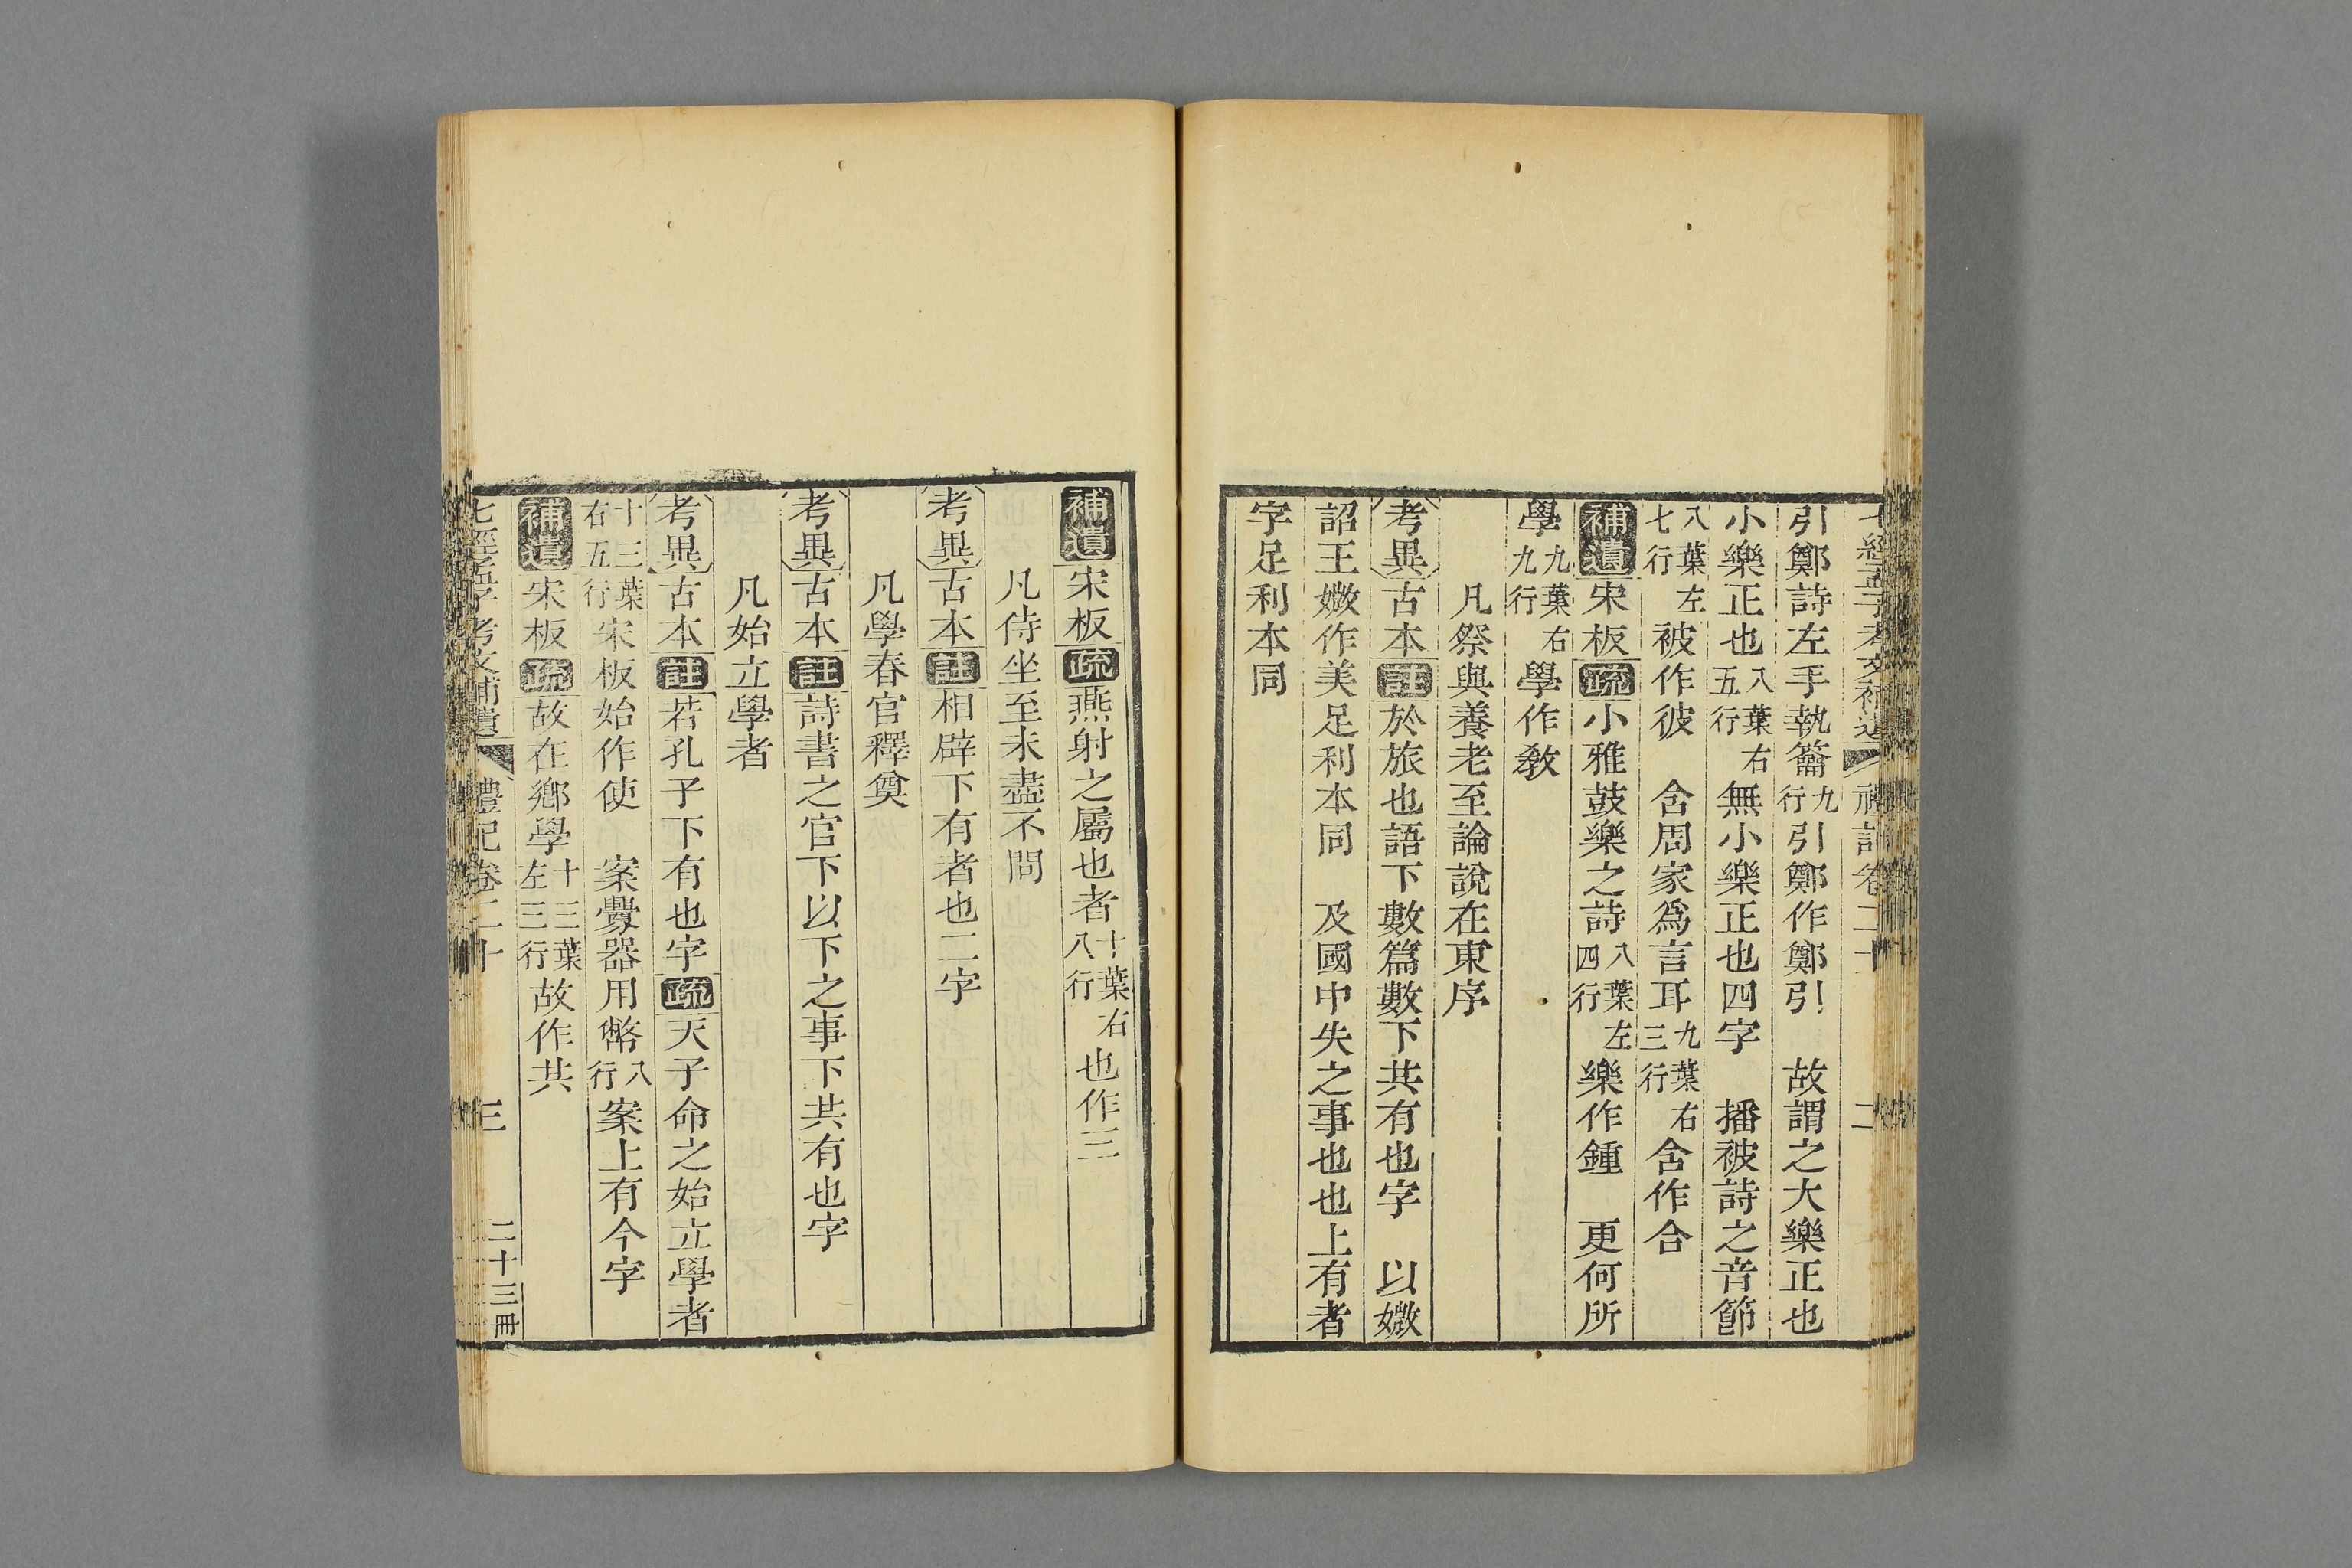 七經孟子考文補遺 禮記卷二十 二
引鄭詩左手執籥九行引鄭作鄭引 故謂之大樂正也
小樂正也八葉右五行無小樂正也四字 播被詩之音節
八葉左七行被作彼 含周家爲言耳九葉右三行含作合
補遺宋板疏小雅鼓樂之詩八葉左四行樂作鍾 更何所
學九葉右九行學作敎
凡祭與養老至論說在東序
考異古本註於旅也語下數篇數下共有也字 以媺
詔王媺作美足利本同 及國中失之事也也上有者
字足利本同
補遺宋板疏燕射之屬也者十葉右八行也作三
凡侍坐至未盡不問
考異古本註相辟下有者也二字
凡學春官釋奠
考異古本註詩書之官下以下之事下共有也字
凡始立學者
考異古本註若孔子下有也字疏天子命之始立學者
十三葉右五行宋板始作使 案釁器用幣八行案上有今字
補遺宋板疏故在鄉學十三葉左三行故作共
七經孟子考文補遺 禮記卷二十 三 二十三冊